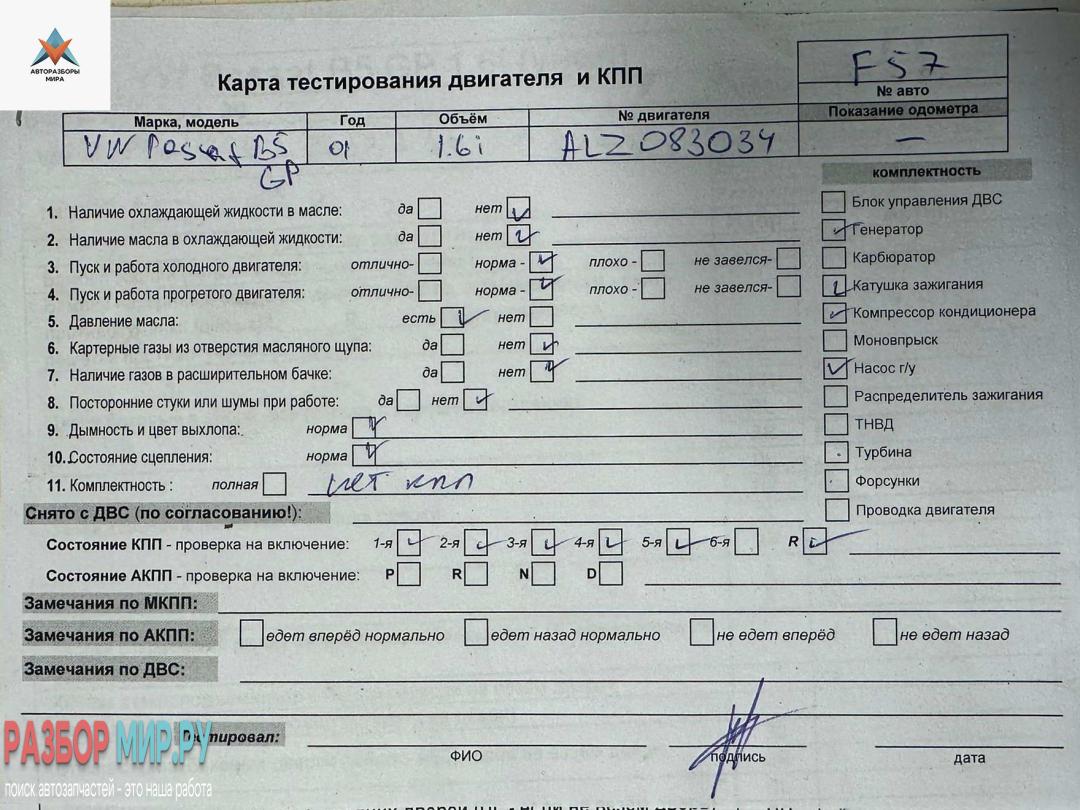 АВТОРАЗБОРЫ
МИРА
Карта тестирования двигателя и КПП
F57
№ авто
Марка, модель Год Объём № двигателя Показание одометра
VW Passat B5 01 1.6i ALZ 083034 —
GP
комплектность
1. Наличие охлаждающей жидкости в масле: да нет
2. Наличие масла в охлаждающей жидкости: да нет
3. Пуск и работа холодного двигателя: отлично- норма - плохо - не завелся-
4. Пуск и работа прогретого двигателя: отлично- норма - плохо - не завелся-
5. Давление масла: есть нет
6. Картерные газы из отверстия масляного щупа: да нет
7. Наличие газов в расширительном бачке: да нет
8. Посторонние стуки или шумы при работе: да нет
9. Дымность и цвет выхлопа: норма
10. Состояние сцепления: норма
11. Комплектность : полная нет кпп
Блок управления ДВС
Генератор
Карбюратор
Катушка зажигания
Компрессор кондиционера
Моновпрыск
Насос г/у
Распределитель зажигания
ТНВД
Турбина
Форсунки
Проводка двигателя
Снято с ДВС (по согласованию!):
Состояние КПП - проверка на включение: 1-я 2-я 3-я 4-я 5-я 6-я R
Состояние АКПП - проверка на включение: P R N D
Замечания по МКПП:
Замечания по АКПП: едет вперёд нормально едет назад нормально не едет вперёд не едет назад
Замечания по ДВС:
Тестировал:
ФИО подпись дата
РАЗБОР МИР.РУ
поиск автозапчастей - это наша работа